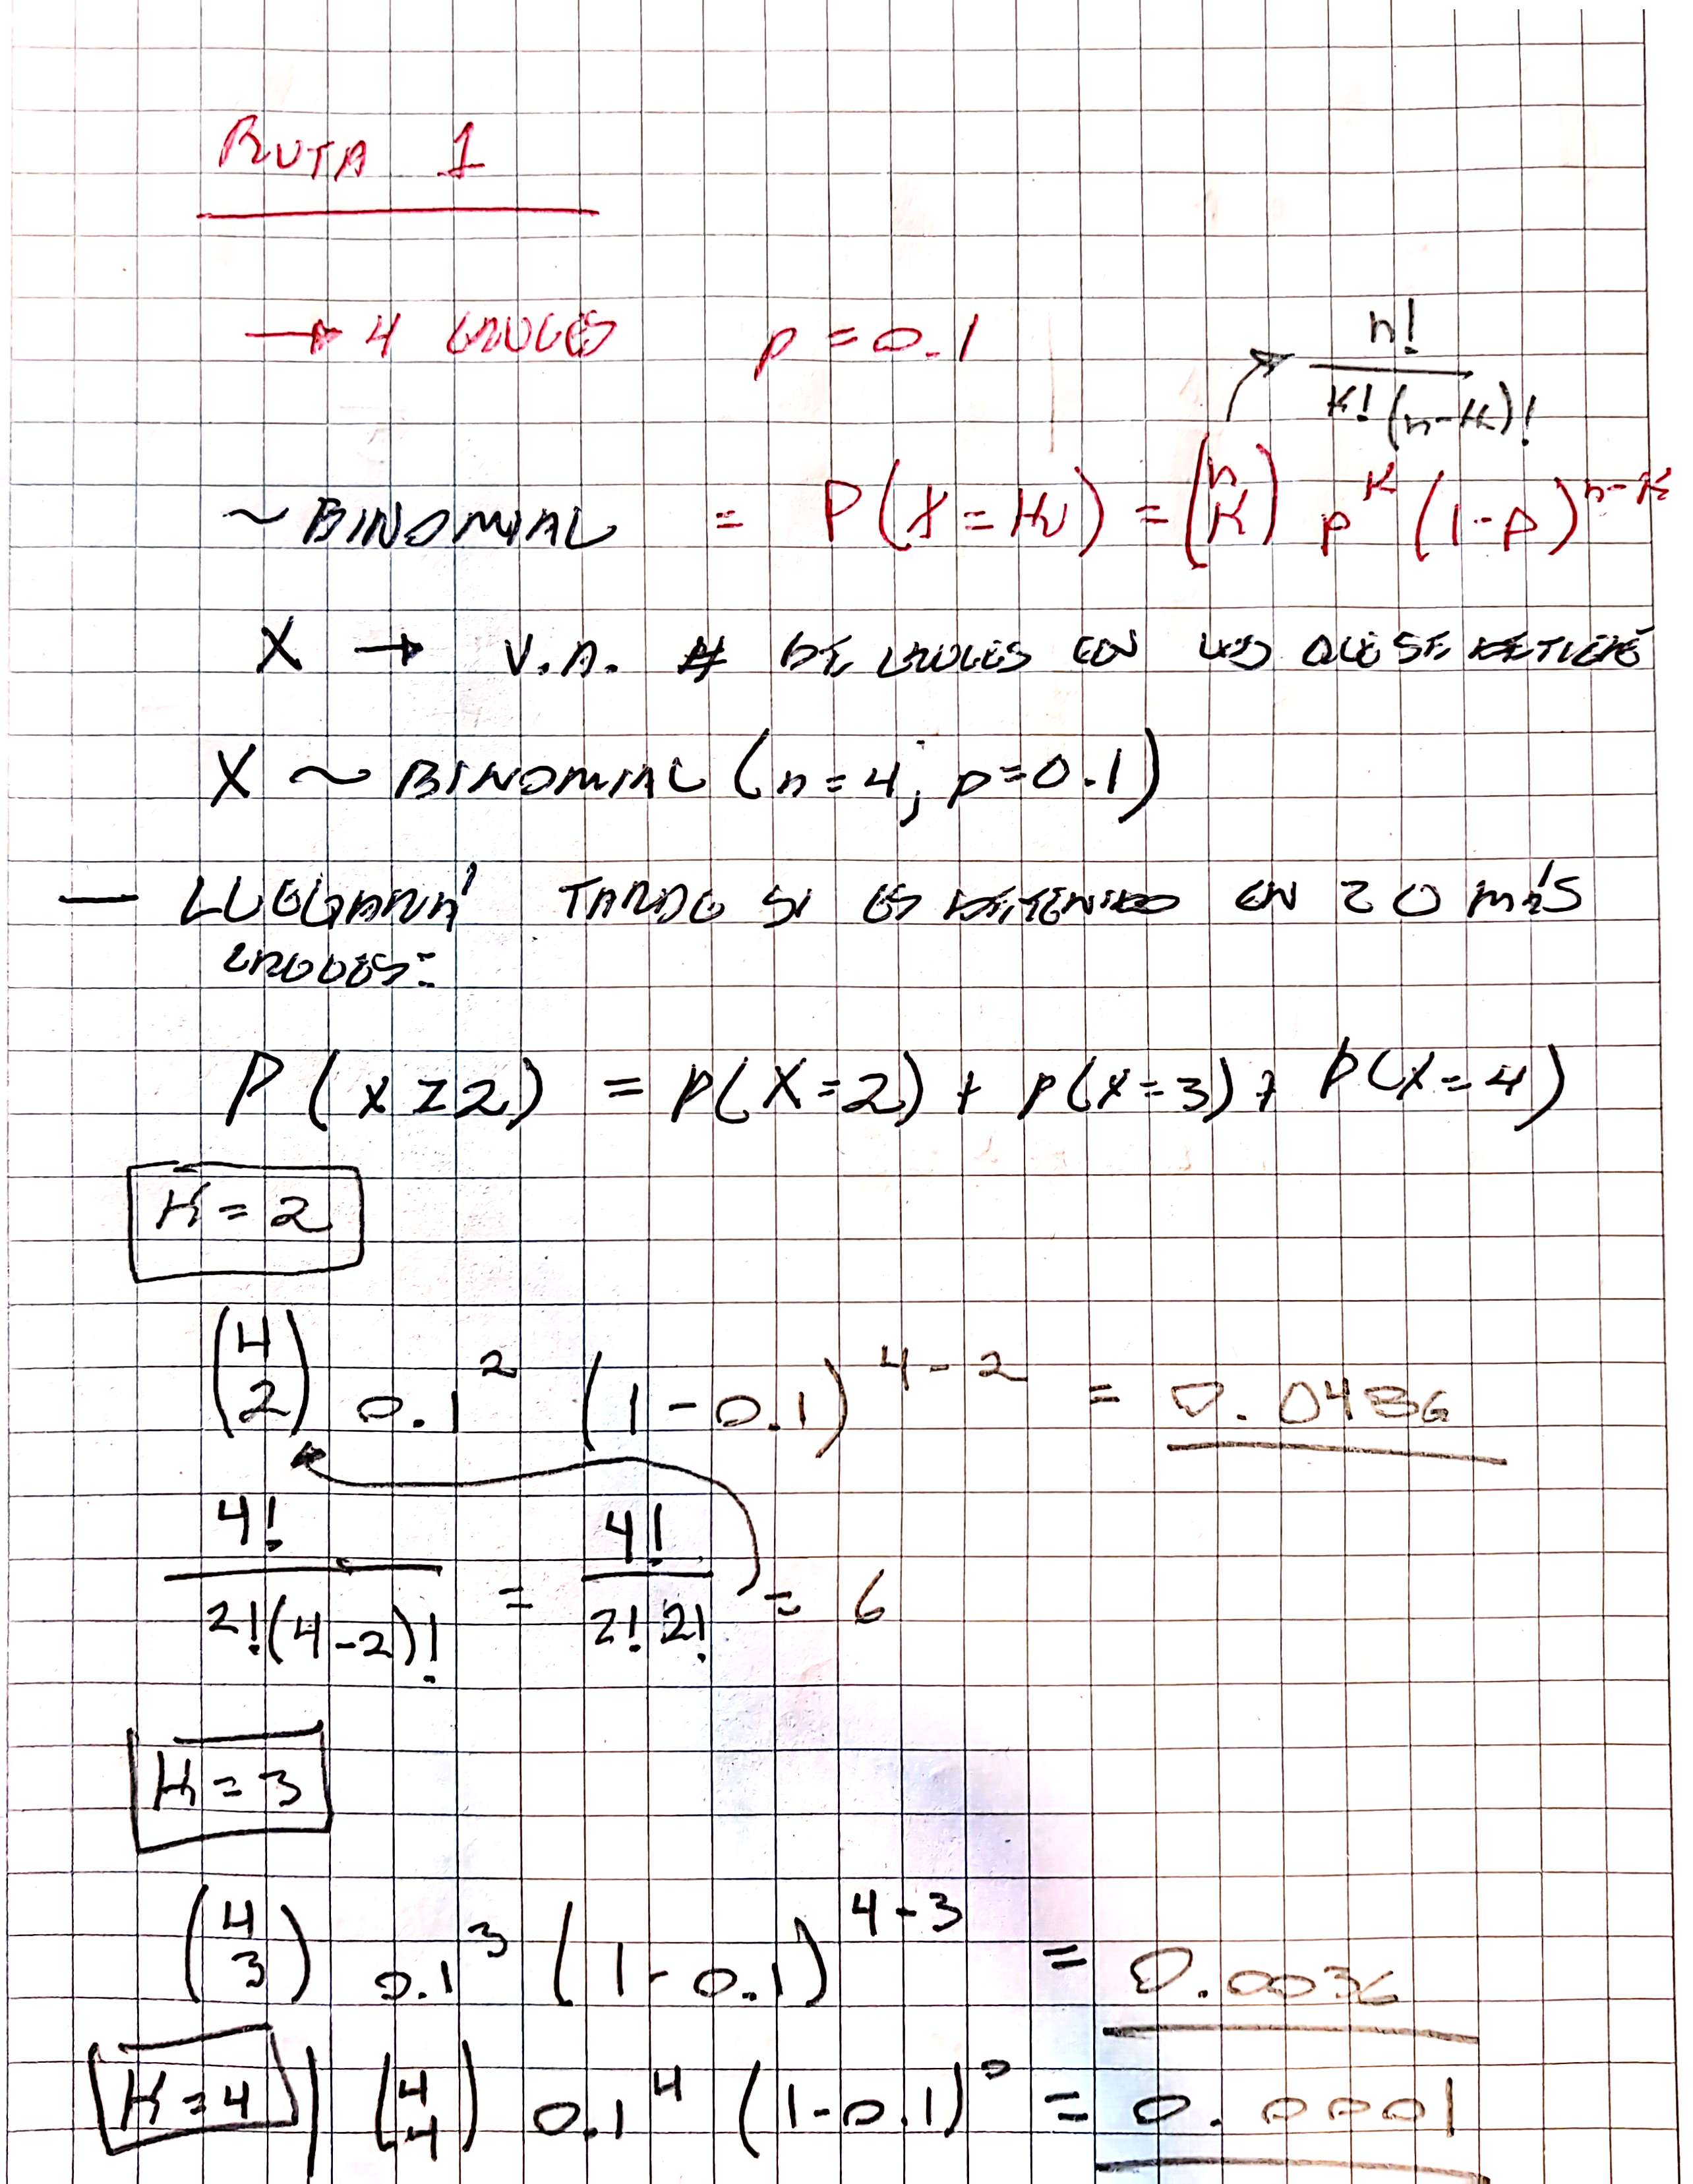 RUTA 1
→ 4 CRUCES p = 0.1
n!
K! (n-K)!
~ BINOMIAL = P(X = K) = (n K) p^K (1-p)^n-K
X → V.A. # DE CRUCES EN LOS QUE SE DETIENE
X ~ BINOMIAL (n = 4; p = 0.1)
— LLEGARÁ TARDE SI ES DETENIDO EN 2 O MÁS
CRUCES:
P(X ≥ 2) = P(X = 2) + P(X = 3) + P(X = 4)
K = 2
(4 2) 0.1^2 (1 - 0.1)^4-2 = 0.0486
4! / 2!(4-2)! = 4! / 2! 2! = 6
K = 3
(4 3) 0.1^3 (1 - 0.1)^4-3 = 0.0036
K = 4 | (4 4) 0.1^4 (1-0.1)^0 = 0.0001